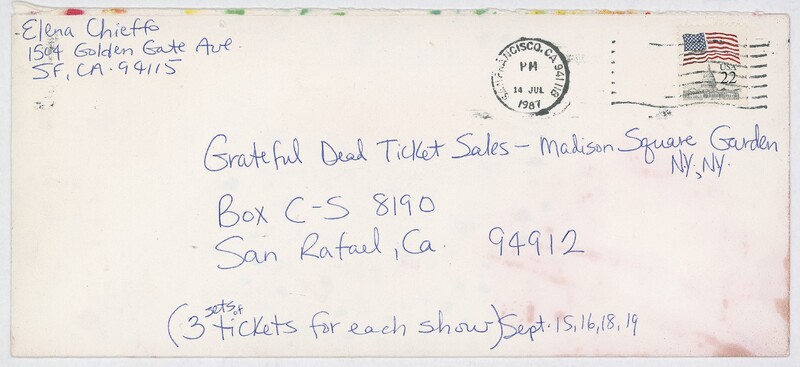 Elena Chieffo
1504 Golden Gate Ave.
SF, CA. 94115
SAN FRANCISCO, CA 94118
PM
14 JUL
1987
USA
22
Grateful Dead Ticket Sales - Madison Square Garden
NY, NY.
Box C-S 8190
San Rafael, Ca. 94912
(3 sets of tickets for each show) Sept. 15, 16, 18, 19